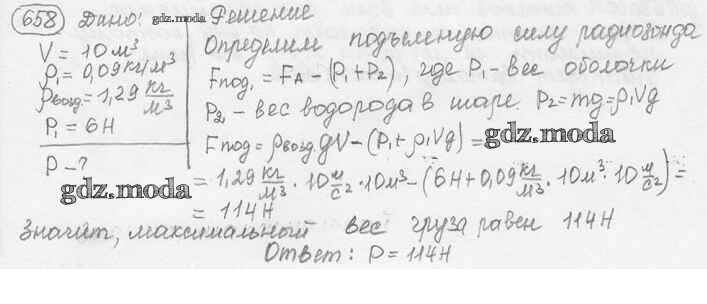 658 Дано: gdz.moda Решение
V = 10 м³
ρ₁ = 0,09 кг/м³
ρвозд. = 1,29 кг/м³
P₁ = 6Н
P - ?
gdz.moda
Определим подъемную силу радиозонда
Fпод₁ = FА - (P₁ + P₂), где P₁ - вес оболочки
P₂ - вес водорода в шаре. P₂ = mg = ρ₁Vg
Fпод = ρвозд.gV - (P₁ + ρ₁Vg) = gdz.moda
= 1,29 кг/м³ · 10 м/с² · 10 м³ - (6Н + 0,09 кг/м³ · 10 м³ · 10 м/с²) =
= 114 Н
Значит, максимальный вес груза равен 114Н
Ответ: P = 114Н